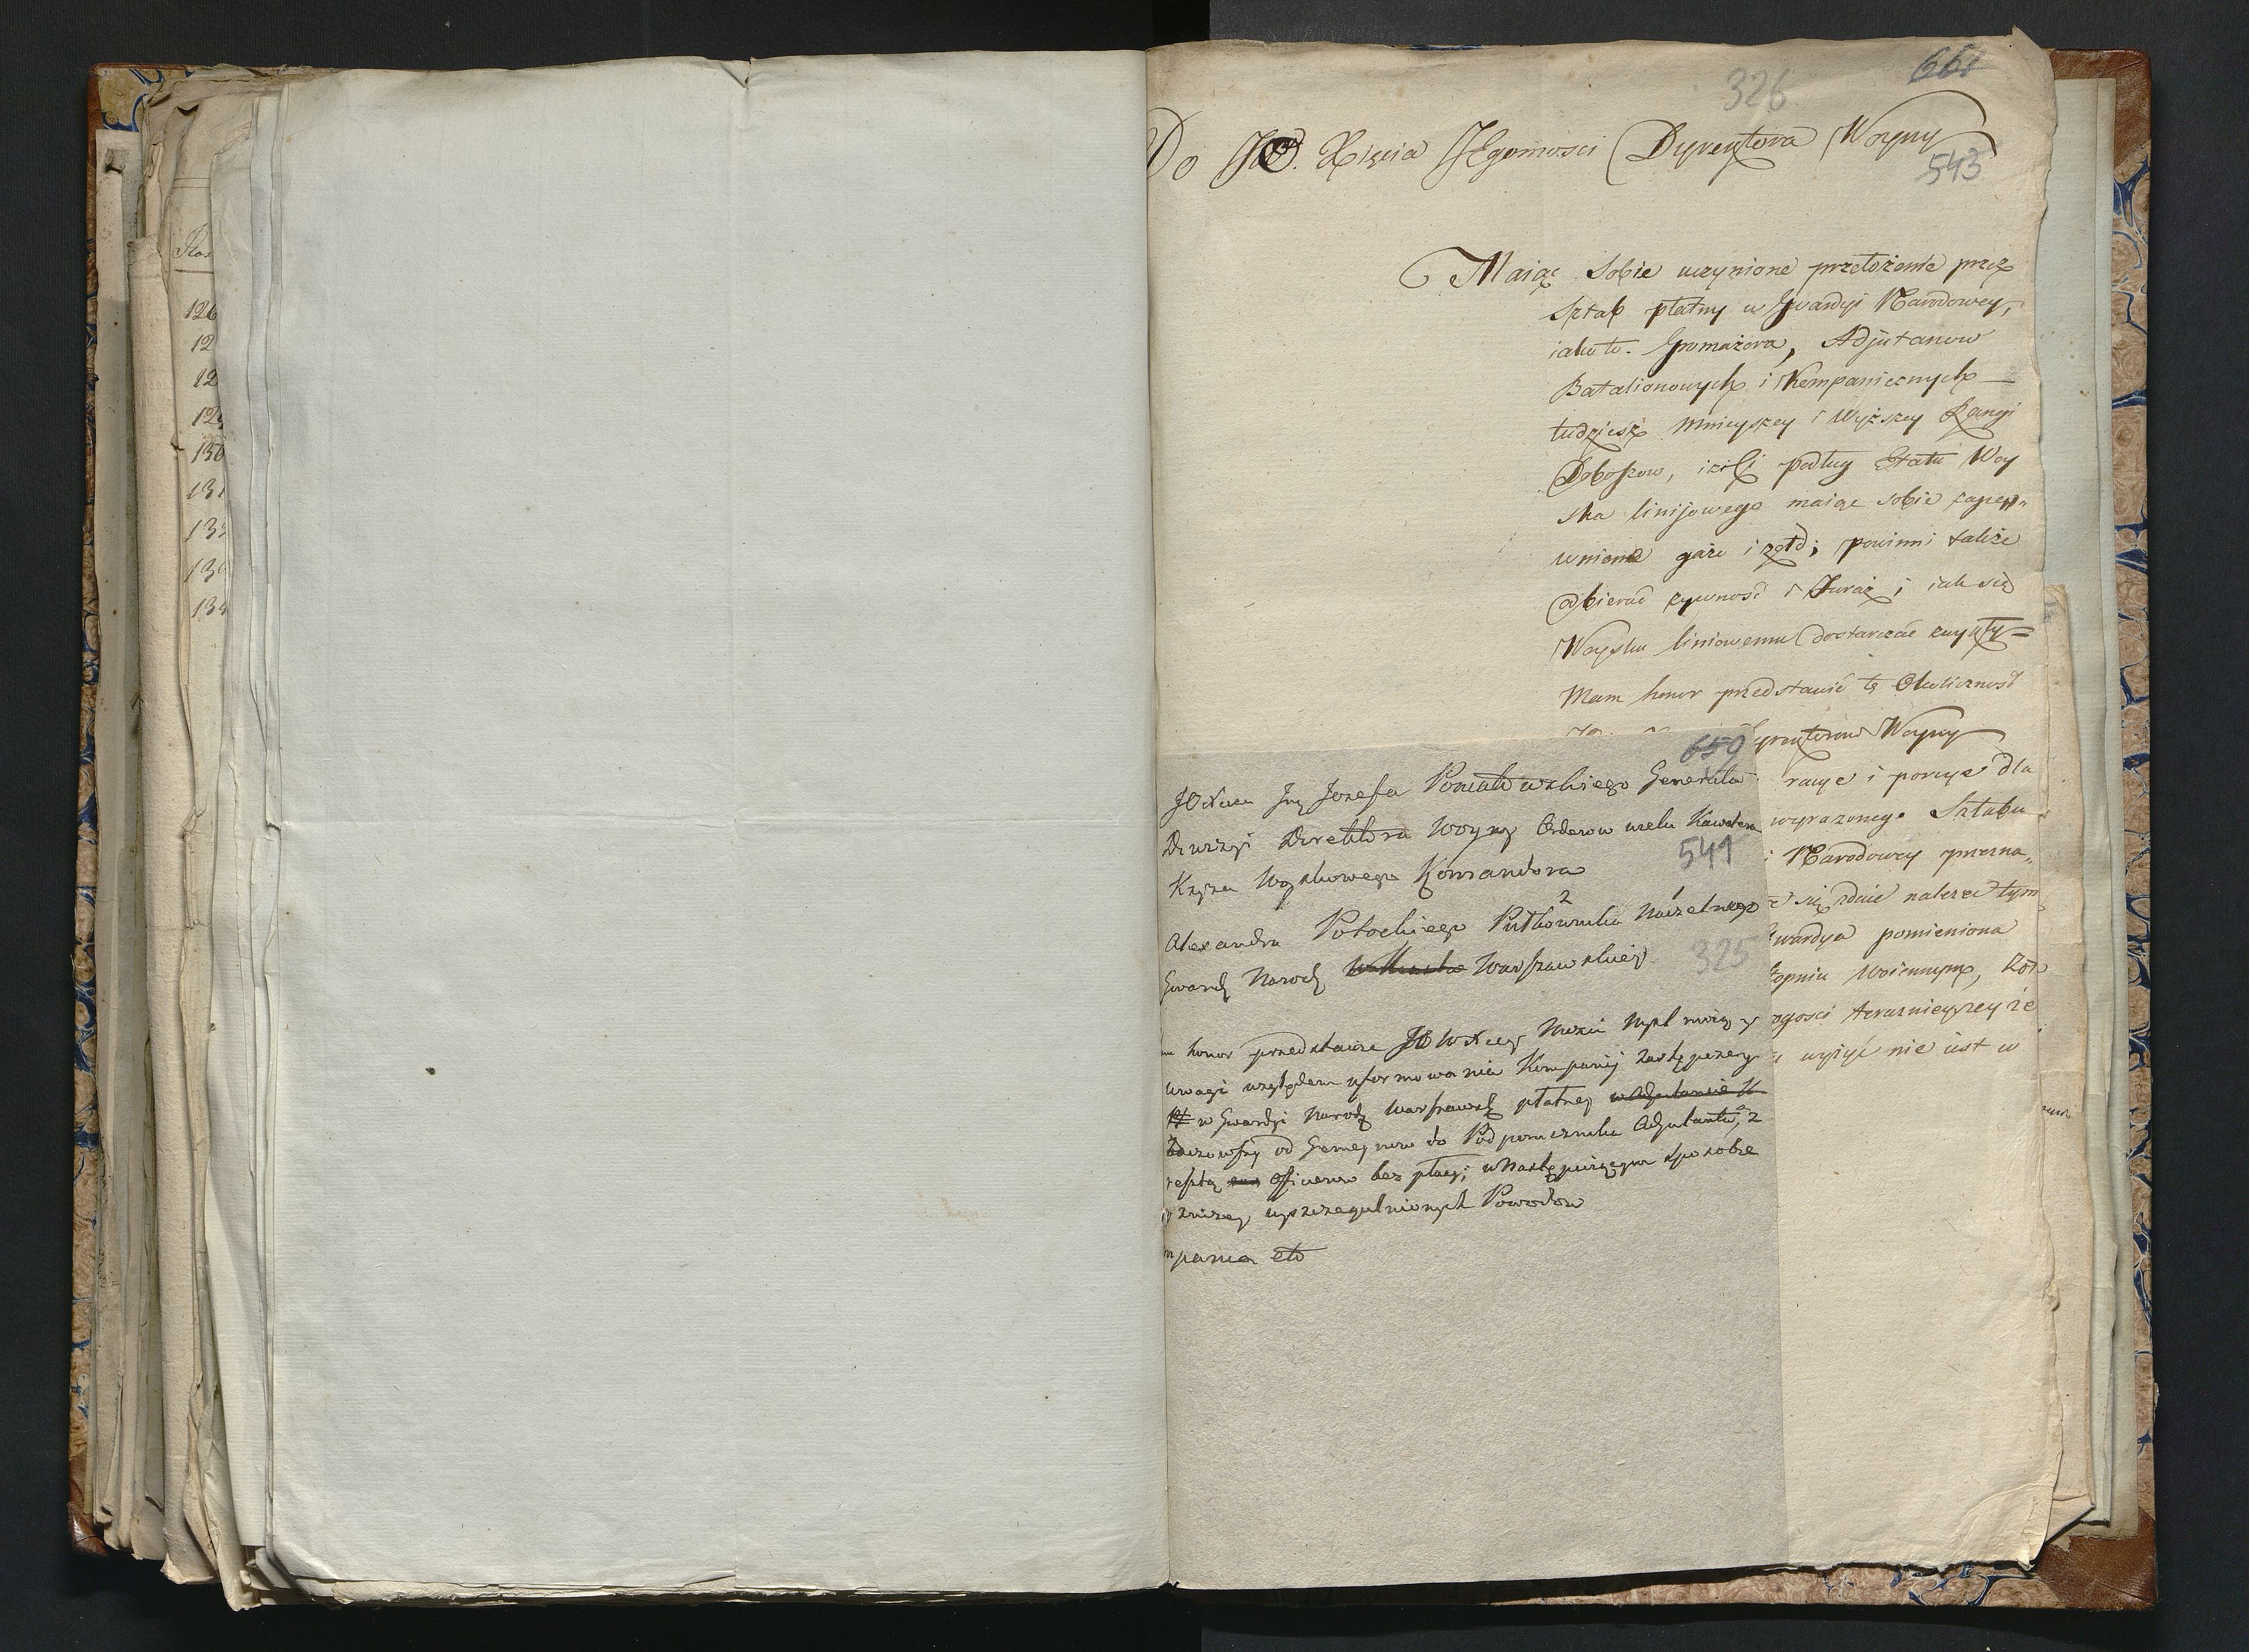 Ras
126
12
12
129
130
131
13
13
13
326
661
Do JO. Xięcia JEgomosci Dyrektora Woyny
543
Maiąc sobie uczynione przełożenie przez
Sztab płatny w Gwardyi Narodowey,
iako to. Gromaiora, Adjutanow
Batalionowych i Kompanicznych
tudziesz mnieyszey i Wyższey Rangi
Doboszow, iżeli podług Etatu Woy
ska linijowego maiąc sobie zapew„
wnione gaże i żołd; powinni także
odbierać żywność i Furaż; iak się
Woysku liniowemu dostarczać zwykły=
Mam honor przedstawić tę Okoliczność
Dyrektorowi Woyny
racye i porcye dla
wyrażonego Sztabu
i Narodowey przezna„
się zdaie należeć tym
Gwardya pomieniona
stopniu Woiennym, Kos
ogosci teraznieyszey że
wyżyć nie iest w
659
JOXcia Jmci Jozefa Poniatowskiego Generała
Dywizyi Direktora Woyny Orderow wielu Kawalera
541
Krzyża Woyskowego Komandora
2 1
Alexandra Potockiego Pułkownika Naczelnego
Gwardy Narody Warszawskiey
325
honor przedstawić JO WXcey Mości myśl moią y
uwagi względem uformowania Kompanij zastępczey
w Gwardyi Narody Warszawsky płatney w Adjutancie K
Zacząwszy od Gemeynow do Podporucznika Adjutanta, z
resztą Officerow bez płacy; w Następuiącym sposobie
zniżey wyszczegulnionych Powodow
mpania etc